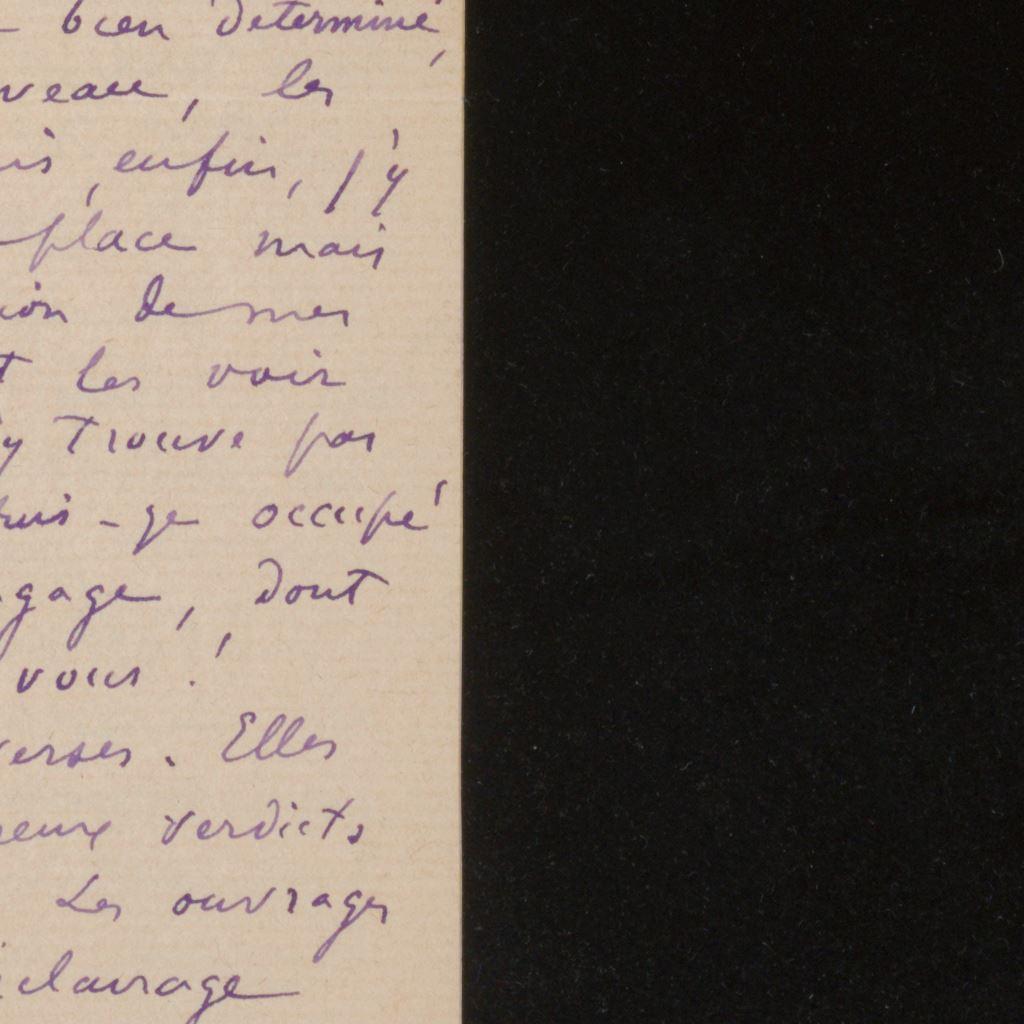 - bien déterminé,
veau, les
is, enfin, j'y
place mais
ion de mes
t les voir
'y trouve pas
suis-je occupé
gage, dont
vous !
verses. Elles
reux verdicts
Les ouvrages
éclairage